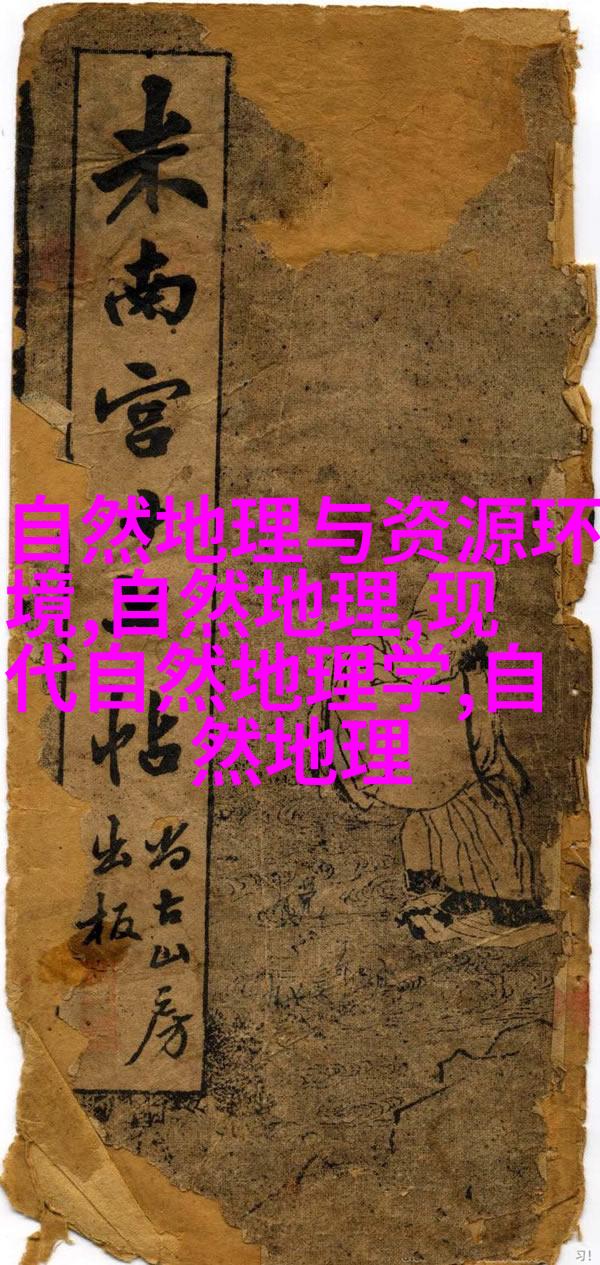 米南宫帖
尚古山房
出板
自然地理与资源环
境,自然地理,现
代自然地理学,自
然地理
习!